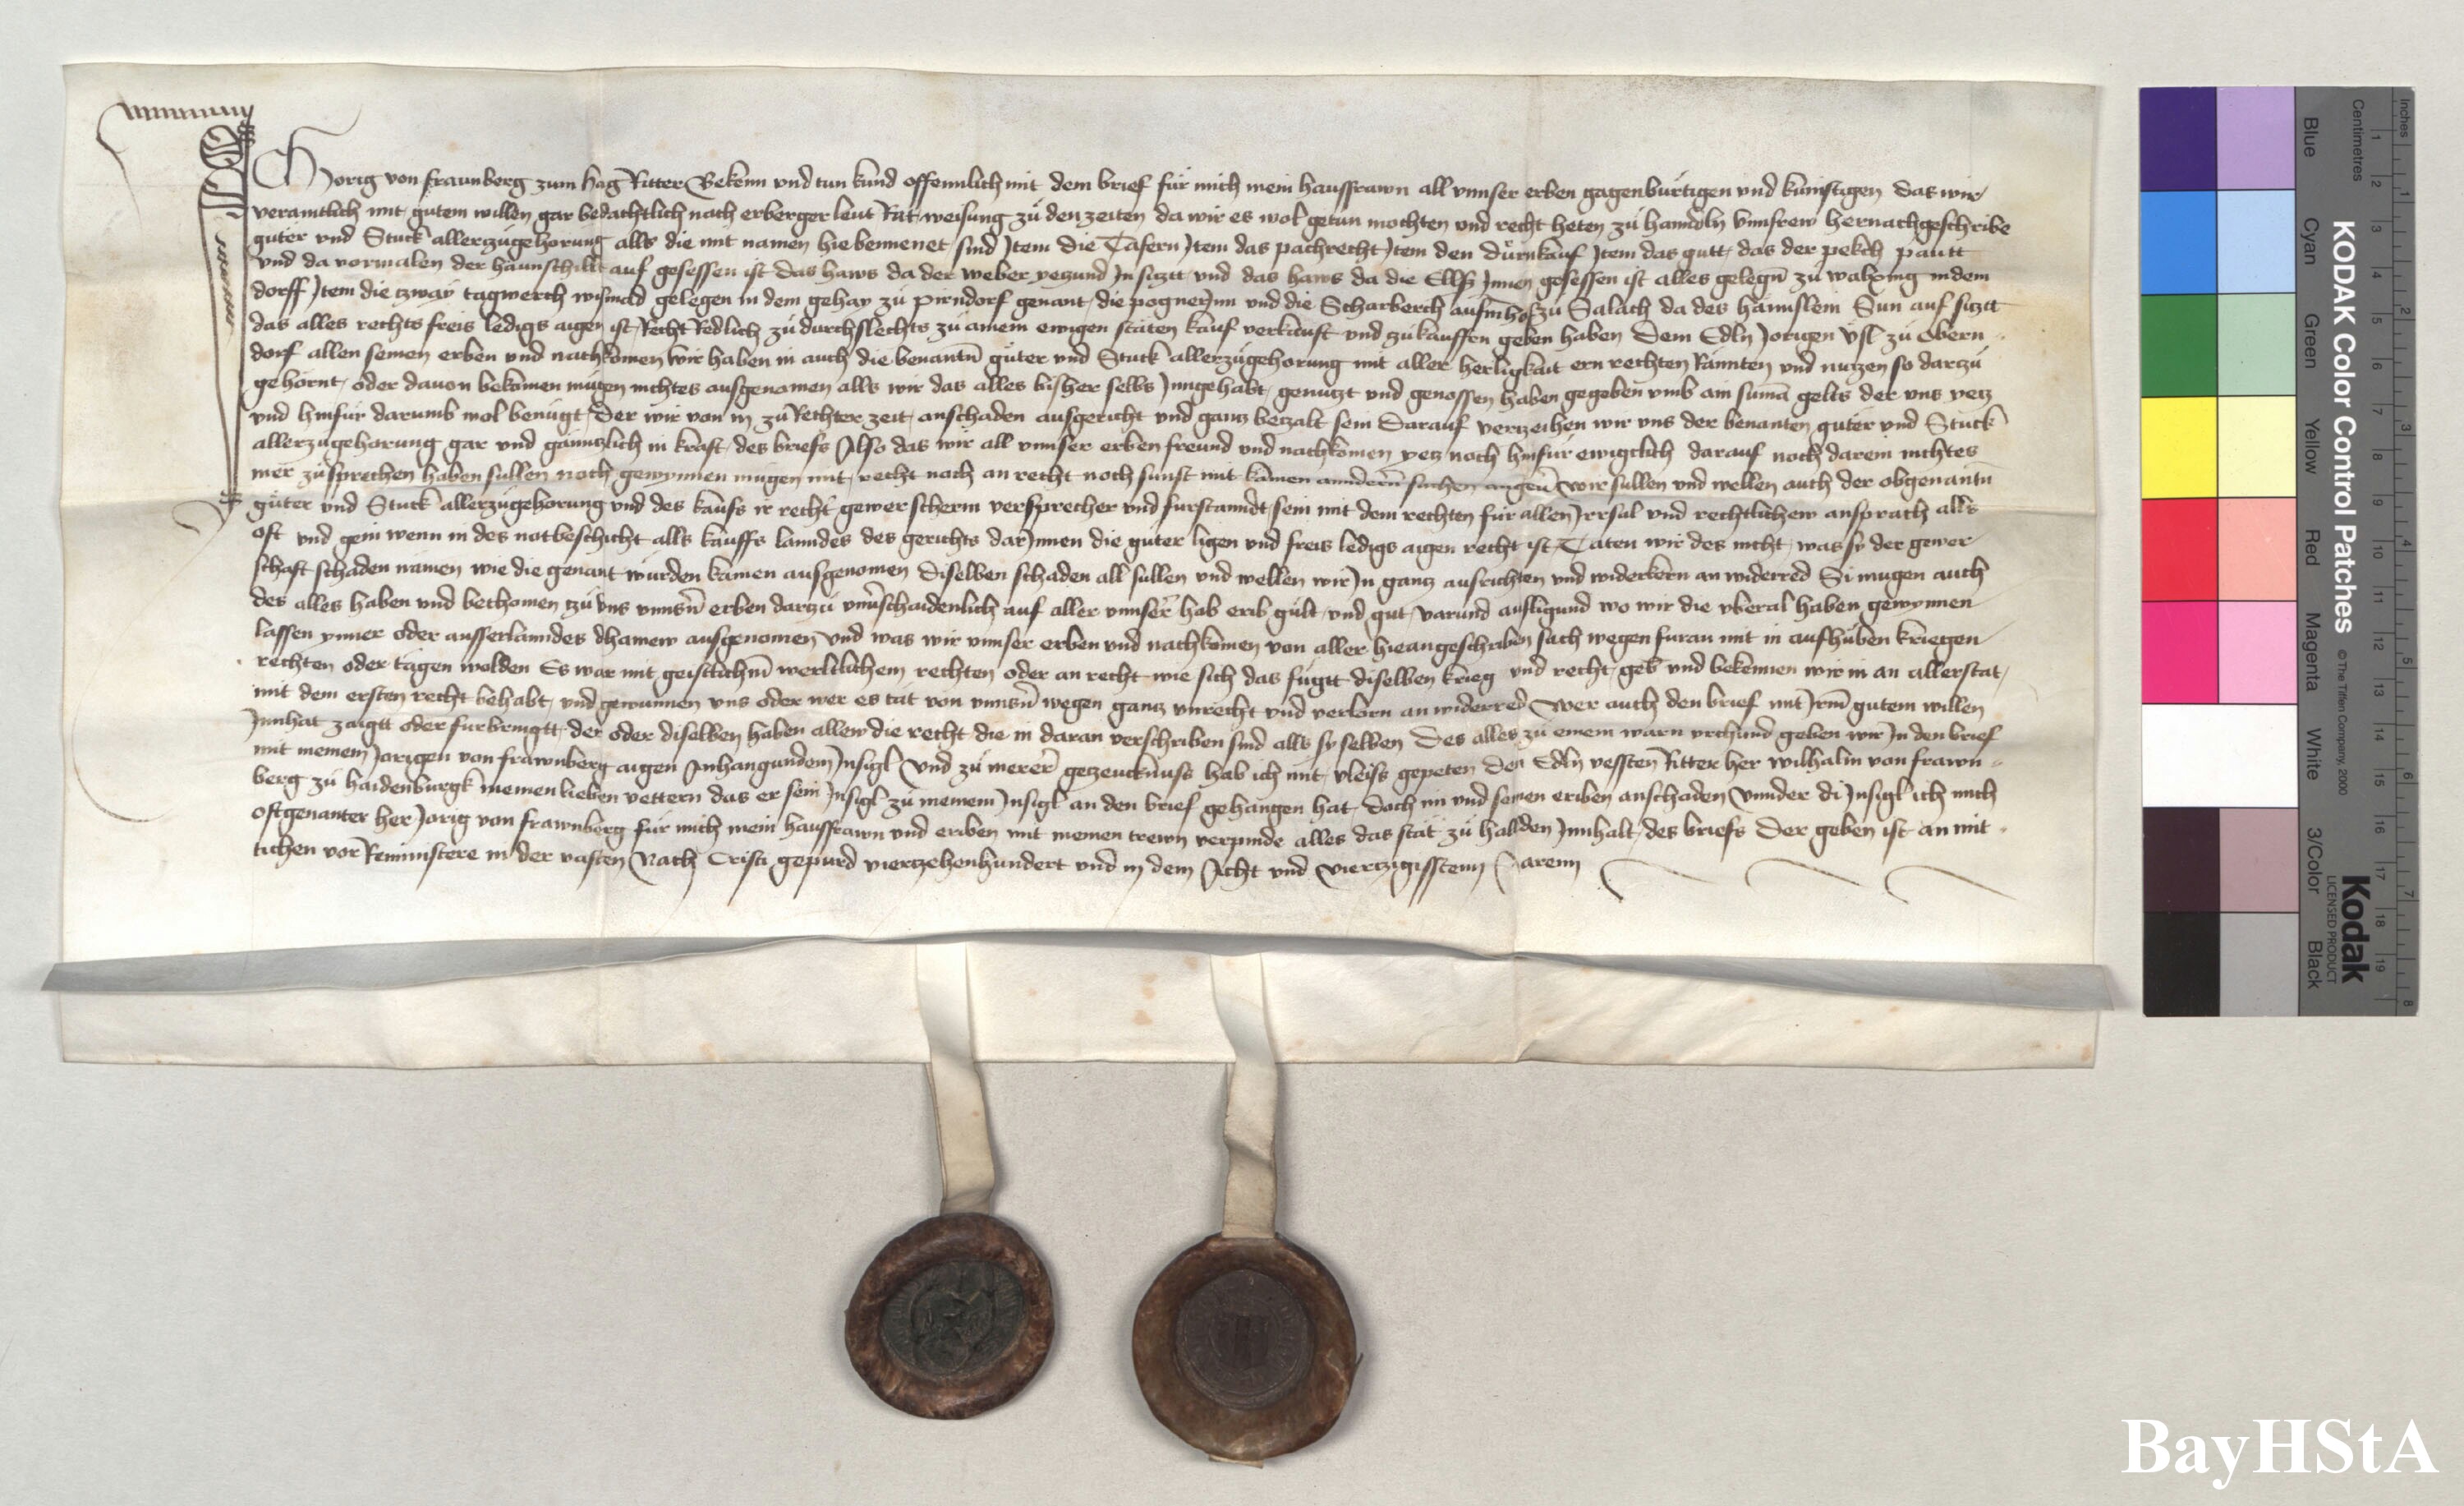 Ich Jorig von fraunberg zum hag Ritter Bekenn vnd tun kund offennlich mit dem brief für mich mein hausfrawn all vnnser erben gagenbürtigen vnd künftigen das wir
veraintlich mit gutem willen gar bedachtlich nach erberger leut Rat weisung zu den zeiten da wir es wol getun mochten vnd recht heten zu hanndln vnnsrew hernachgeschribe
güter vnd Stuck allerzugehorung alls die mit namen hie bennenet sind Item die Tafern Item das pachrecht Item den dürnkauf Item das gutt das der pekch pautt
vnd da vormalen der haunschilt auf gesessen ist das haws da der weber yezund In sitzt vnd das haws da die Ells Innen gesessen ist alles gelegn zu in dem
dorff Item die zway tagwerch wismad gelegen in dem gehay zu pirndorf genant die pognerinn vnd die Scharberch aufm hof zu Salach da des hännslein Sun auf sitzt
das alles rechts freis ledigs aigen ist Recht Redlich zu durchslechts zu ainem ewigen stäten kauf verkauft vnd zukauffen geben haben Dem Edln Jorigen zu Obern
dorf allen seinen erben vnd nachkomen wir haben in auch die benantn güter vnd Stuck allerzugehorung mit aller herligkait ern rechten Rännten vnd nutzen so darzu
gehörnt oder dauon bekomen mugen nichtes ausgenomen alls wir das alles bisher selbs Inngehabt genutzt vnd genossen haben gegeben vmb ain suma gelts der vns yetz
vnd hinfür darumb wol benügt Der wir von in zu Rechter zeit anschaden ausgericht vnd gantz betzalt sein Darauf verzeihen wir vns der benanten güter vnd Stuck
allerzugehorung gar vnd gänntzlich in kraft des briefs Also das wir all vnnser erben freund vnd nachkomen yetz noch hinfür ewigclich darauf noch darein nichtes
mer zusprechen haben sullen noch gewynnen mugen mit recht noch an recht noch sunst mit kainen anndern sachen wir sullen vnd wellen auch der obgenantn
güter vnd Stuck allerzugehorung vnd des kaufs ir recht gewer scherm versprecher vnd furstanndt sein mit dem rechten für allen Irrsal vnd rechtlichew ansprach alls
oft vnd in des notbeschicht alls kauffs lanndes des gerichts darInnen die güter ligen vnd freis ledigs aigen recht ist Täten wir des nicht was sy der gewer
schaft schaden nämen wie die genant würden kainen ausgenomen Diselben schaden all sullen vnd wellen wir In gantz ausrichten vnd widerkern an widerred Si mugen auch
des alles haben vnd bechomen zu vns vnnsern erben darzu vnuerschaidenlich auf aller vnnser hab erib gült vnd gut varund auffligund wo wir die vberal haben gewynnen
lassen ynner oder ausserlanndes dhainew ausgenomen vnd was wir vnnser erben vnd nachkomen von aller hieangeschriben sach wegen furan mit in aufhüben kriegen
rechten oder tägen wolden Es war mit geistlichm werltlichem rechten oder an recht wie sich das fügtt diselben krieg vnd recht geb vnd bekennen wir in an allerstat
mit dem ersten recht behabt vnd gewunnen vns oder wer es tät von vnnsern wegen gantz vnrecht vnd verlorn an widerred Wer auch den brief mit Irm gutem willen
Innhat zaigtt oder furbringtt der oder diselben haben allew die recht die in daran verschriben sind alls sy selben Des alles zu einem warn vrchund geben wir In den brief
mit meinem Jorigen von frawnberg aigen Anhangundem Insigl vnd zu merer getzeucknuss hab ich mit vleiss gepeten den Edln vessten Ritter her wilhalm von frawn
berg zu haidenburgk meinen lieben vettern das er sein Insigl zu meinem Insigl an den brief gehangen hat doch im vnd seinen eriben anschaden vnnder di Insigl ich mich
oftgenanter her Jorig von frawnberg für mich mein hausfrawn vnd eriben mit meinen trewn verpinde alles das stät zu hallden Innhalt des briefs Der geben ist an mit
tichen vor Reminiscere in der vasten Nach Cristi gepurd viertzehenhundert vnd in dem Acht vnd viertzigisstem Jarenn
KODAK Color Control Patches
© The Tiffen Company, 2000
Kodak
LICENSED PRODUCT
Inches
Centimetres
Blue
Cyan
Green
Yellow
Red
Magenta
White
3/Color
Black
1 2 3 4 5 6 7 8 9 10 11 12 13 14 15 16 17 18 19
1 2 3 4 5 6 7 8
BayHStA